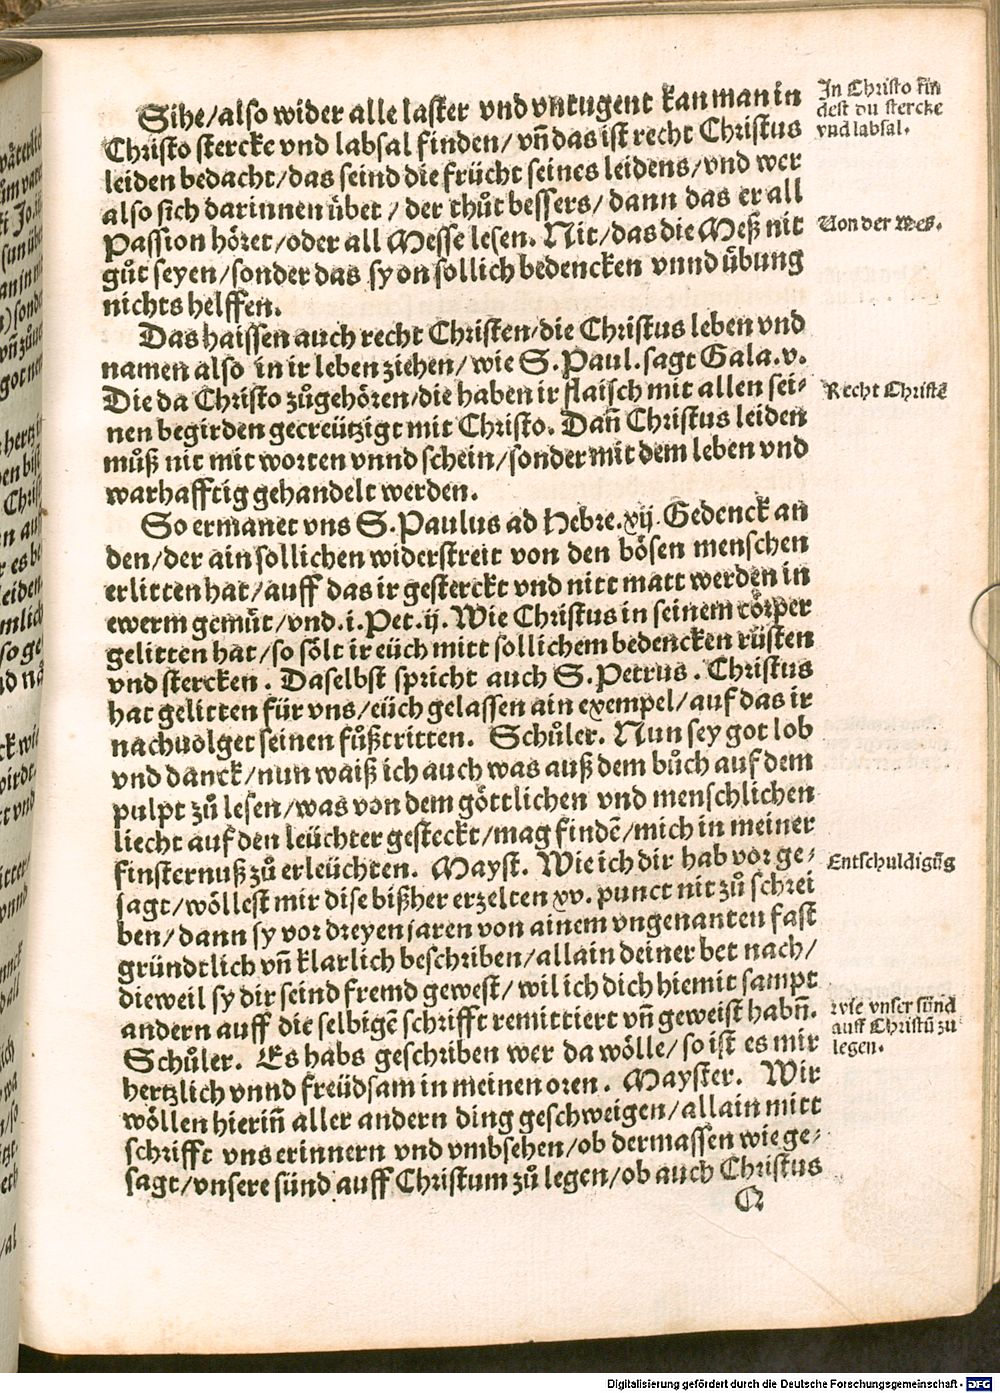 Sihe/also wider alle laster vnd vntugent kan man in
Christo stercke vnd labsal finden/ vñ das ist recht Christus
leiden bedacht/das seind die frücht seines leidens/vnd wer
also sich darinnen übet / der thůt bessers/ dann das er all
Passion höret/oder all Messe lesen. Nit/das die Meß nit
gůt seyen/sonder das sy on sollich bedencken vnnd übung
nichts helffen.
Das haissen auch recht Christen/die Christus leben vnd
namen also in ir leben ziehen/ wie S. Paul. sagt Gala.v.
Die da Christo zůgehören/die haben ir flaisch mit allen sei-
nen begirden gecreützigt mit Christo. Dañ Christus leiden
můß nit mit worten vnnd schein/sonder mit dem leben vnd
warhafftig gehandelt werden.
So ermanet vns S. Paulus ad Hebre.xij. Gedenck an
den/der ain sollichen widerstreit von den bösen menschen
erlitten hat/auff das ir gesterckt vnd nitt matt werden in
ewerm gemüt/vnd.i.Pet.ij. Wie Christus in seinem cörper
gelitten hat/so sölt ir eüch mitt sollichem bedencken rüsten
vnd stercken. Daselbst spricht auch S. Petrus. Christus
hat gelitten für vns/eüch gelassen ain exempel/auf das ir
nachuolget seinen fůßtritten. Schůler. Nun sey got lob
vnd danck/nun waiß ich auch was auß dem bůch auf dem
pulpt zů lesen/was von dem göttlichen vnd menschlichen
liecht auf den leüchter gesteckt/mag findẽ/mich in meiner
finsternuß zů erleüchten. Mayst. Wie ich dir hab vor ge-
sagt/wöllest mir dise bißher erzelten xv. punct nit zů schrei
ben/dann sy vor dreyen jaren von ainem vngenanten fast
gründtlich vñ klarlich beschriben/allain deiner bet nach/
dieweil sy dir seind fremd gewest/ wil ich dich hiemit sampt
andern auff die selbigẽ schrifft remittiert vñ geweist habñ.
Schůler. Es habs geschriben wer da wölle/so ist es mir
hertzlich vnnd freüdsam in meinen oren. Mayster. Wir
wöllen hieriñ aller andern ding geschweigen/allain mitt
schrifft vns erinnern vnd vmbsehen/ob dermassen wie ge-
sagt/vnsere sünd auff Christum zů legen/ob auch Christus
Q
In Christo fin
dest du stercke
vnd labsal.
Von der Mes.
Recht Christẽ
Entschuldigũg
Wie vnser sünd
auff Christũ zu
legen.
Digitalisierung gefördert durch die Deutsche Forschungsgemeinschaft - DFG